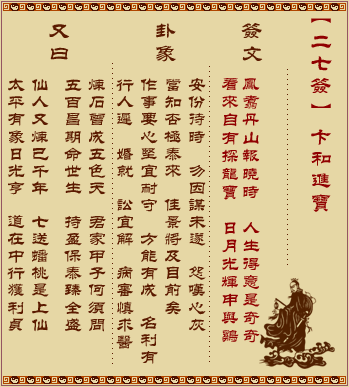 【二七簽】 卞和進寶
簽文
鳳鸞丹山報曉時 人生得意是奇奇
看來自有探龍寶 日月光輝申與鷄
卦象
安份待時 勿因謀未遂 怨嘆心灰
當知否極泰來 佳景將及目前矣
作事要心堅宜耐守 方能有成 名利有
行人遲 婚就 訟宜解 病審慎求醫
又曰
煉石曾成五色天 君家甲子何須問
五百昌期命世生 持盈保泰臻全盛
仙人又煉已千年 七送蟠桃是上仙
太平有象日光亨 道在中行獲利貞